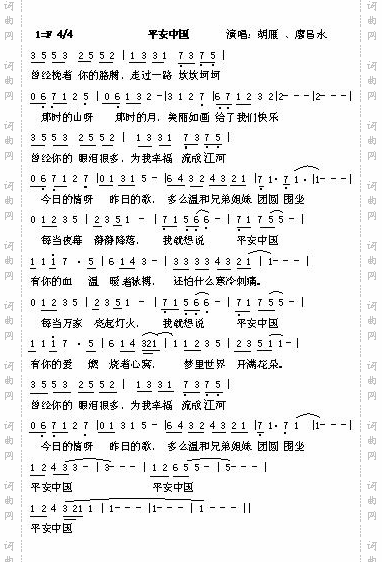 1=F 4/4 平安中国 演唱:胡雁 、廖昌永
3 5 5 3 2 5 5 2 | 1 3 3 1 7 3 7 5 |
曾经挽着 你的胳膊,走过一路 坎坎坷坷
0 6 7 1 2 7 5 | 0 6 1 3 2 - | 3 1 2 7 | 6 7 1 2 3 2 | 2 - - - | 2 - - |
那时的山呀 那时的月,美丽如画 给了我们快乐
3 5 5 3 2 5 5 2 | 1 3 3 1 7 3 7 5 |
曾经你的 眼泪很多,为我幸福 流成江河
0 6 7 1 2 7 5 | 0 1 3 1 5 - | 6 4 3 2 4 3 2 1 | 7 1 · 7 1 · | 1 - - - |
今日的情呀 昨日的歌, 多么温和兄弟姐妹 团圆 围坐
0 1 2 3 5 | 2 3 5 1 - | 7 1 7 5 6 6 - | 7 1 7 5 5 - |
每当夜幕 静静降落, 我就想说 平安中国
1 1 1 7 · 5 | 6 1 4 3 - | 3 3 3 3 4 3 2 1 | 1 - - - |
有你的血 温 暖着脉搏, 还怕什么寒冷刺痛。
0 1 2 3 5 | 2 3 5 1 - | 7 1 7 5 6 6 - | 7 1 7 5 5 - |
每当万家 亮起灯火, 我就想说 平安中国
1 1 1 7 · 5 | 6 1 4 321 | 1 1 2 3 5 | 2 3 5 1 1 - |
有你的爱 燃 烧着心窝, 梦里世界 开满花朵。
3 5 5 3 2 5 5 2 | 1 3 3 1 7 3 7 5 |
曾经你的 眼泪很多,为我幸福 流成江河
0 6 7 1 2 7 5 | 0 1 3 1 5 - | 6 4 3 2 4 3 2 1 | 7 1 · 7 1 | 1 - - - |
今日的情呀 昨日的歌, 多么温和兄弟姐妹 团圆 围坐
1 2 4 3 3 - | 3 - - - | 1 2 6 5 5 - | 5 - - - |
平安中国 平安中国
1 2 4 3 21 1 | 1 - - - | 1 - - - | 1 - - - ||
平安中国
词曲网
词曲网